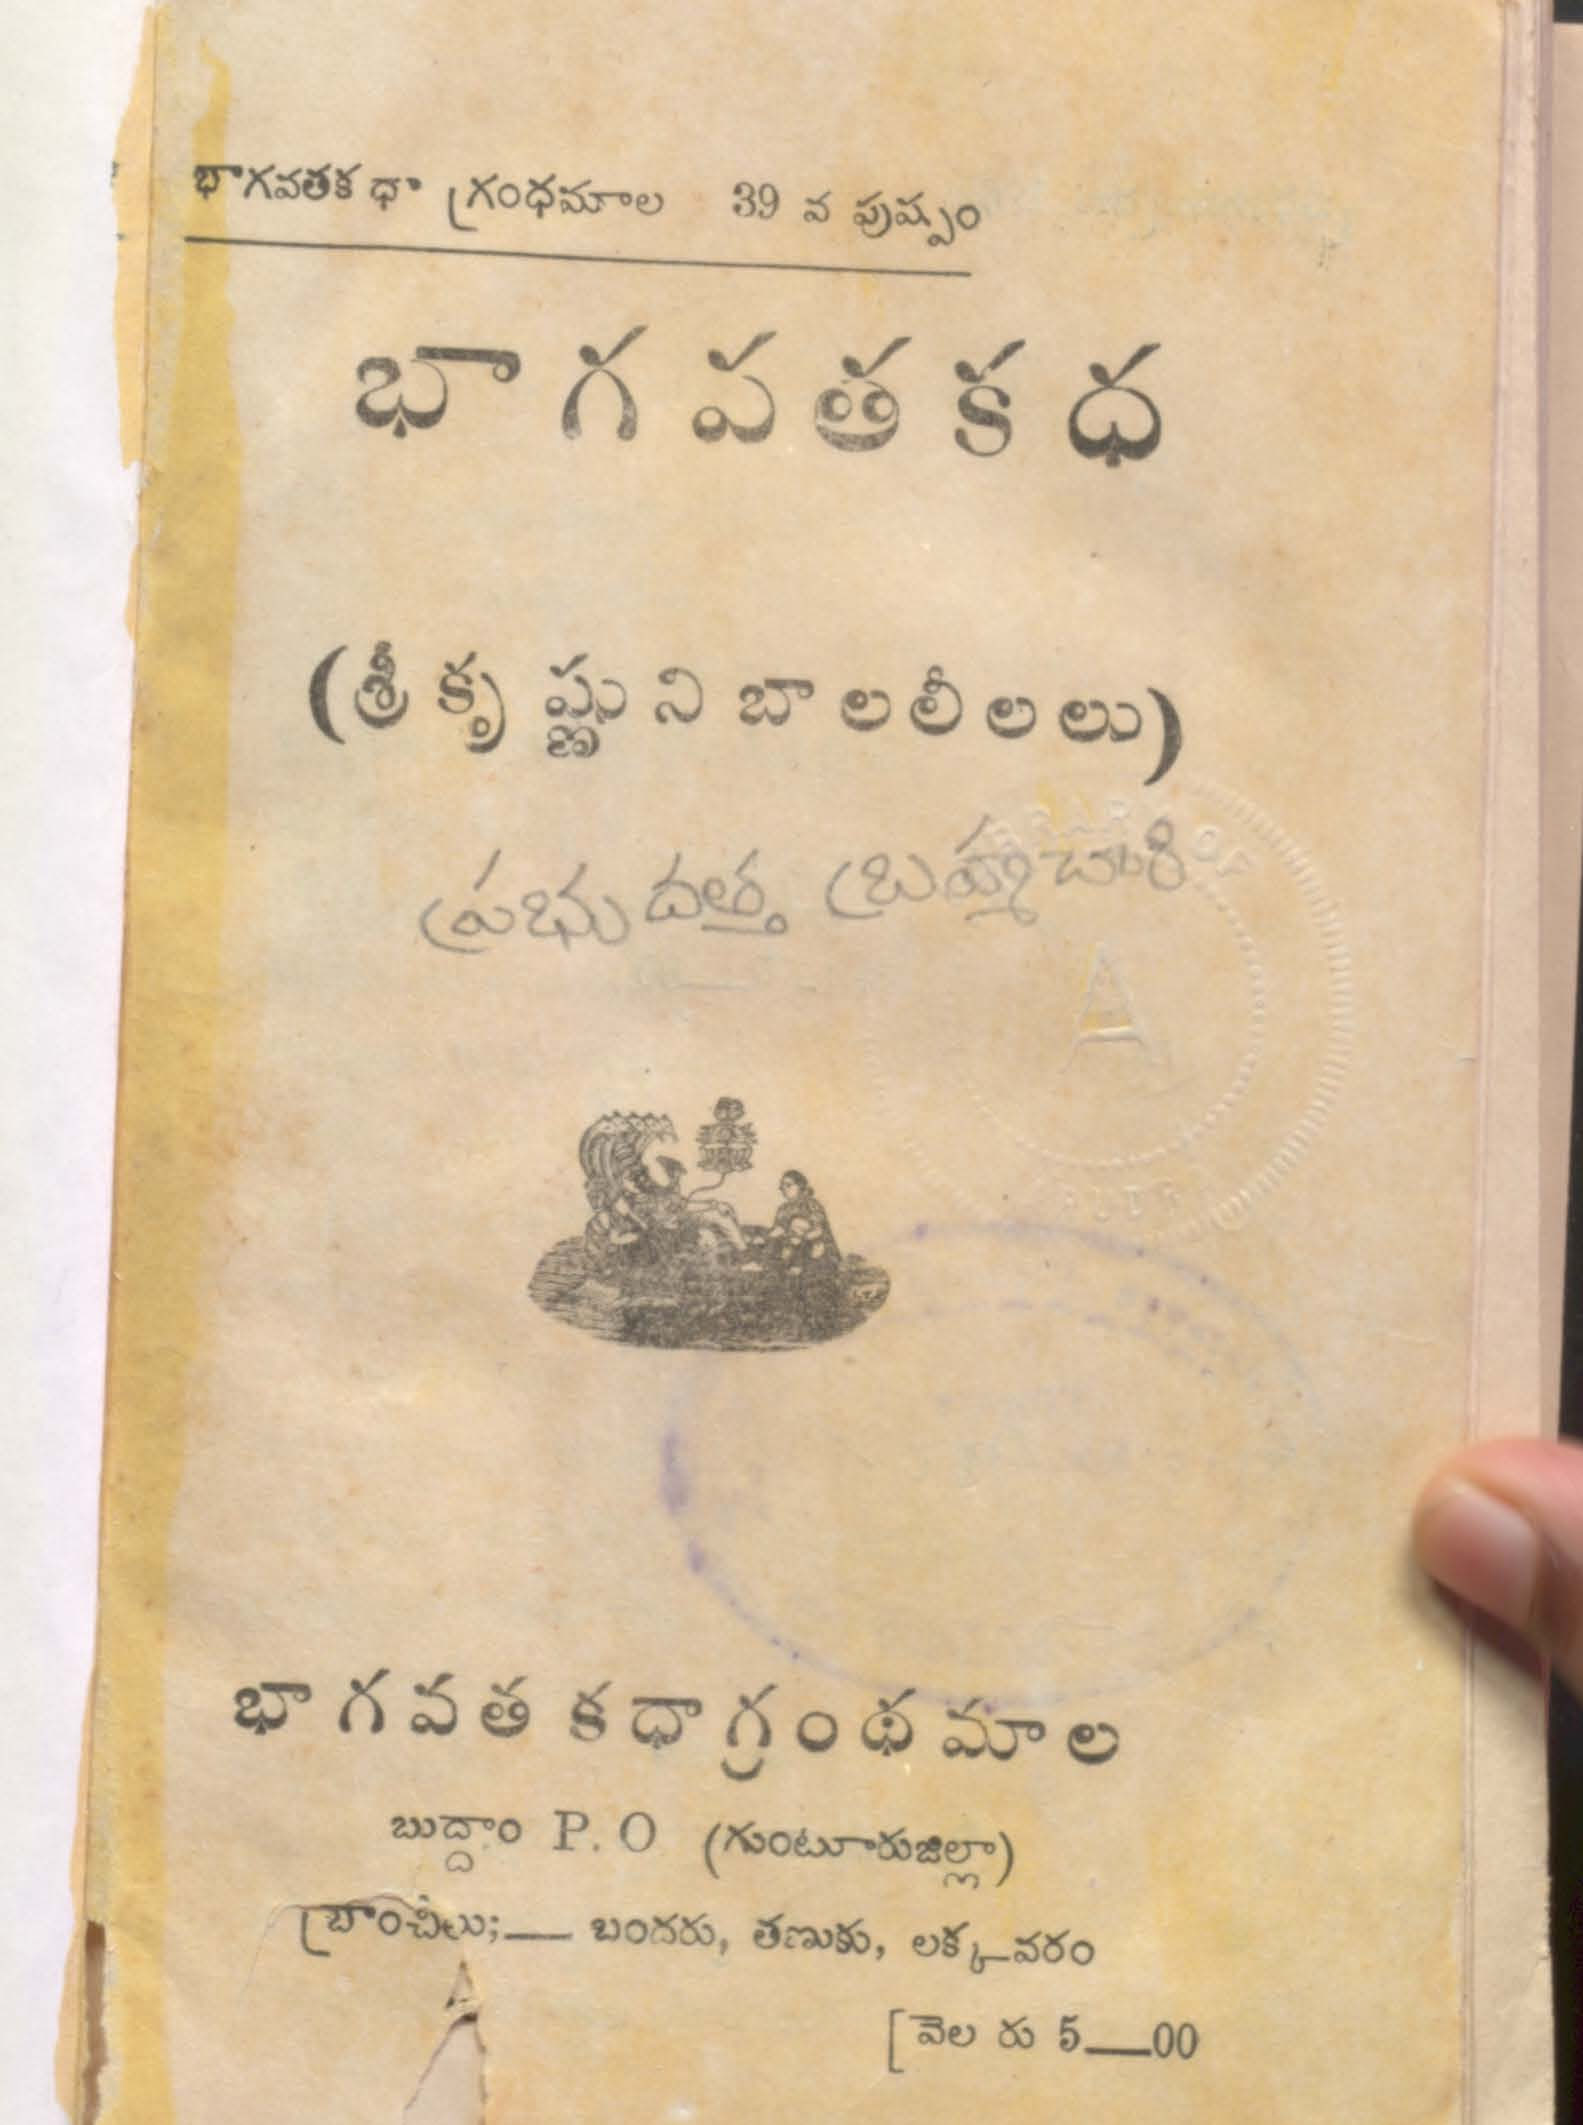 భాగవతకధా గ్రంధమాల 39 వ పుష్పం
భాగవతకధ
(శ్రీకృష్ణునిబాలలీలలు)
ప్రభుదత్త బ్రహ్మచారి
A
భాగవతకధాగ్రంథమాల
బుద్దాం P. O (గుంటూరుజిల్లా)
బ్రాంచీలు;— బందరు, తణుకు, లక్కవరం
[వెల రు 5—00